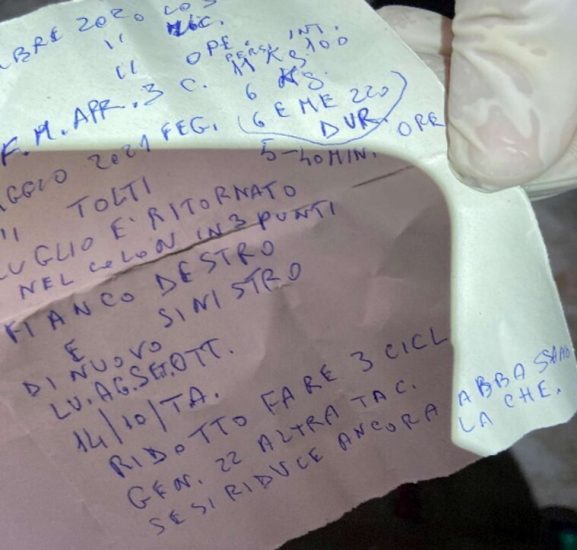 BRE 2020 COS
" INT.
" OPE. 11 KS 100
F. M. APR. 3 C. 6 KS.
AGGIO 2021 FEG. (6 EME 220)
DUR. ORE
" TOLTI 5-40 MIN.
LUGLIO E' RITORNATO
NEL COLON IN 3 PUNTI
FIANCO DESTRO
E SINISTRO
DI NUOVO
LU. AG. SET. OTT.
14/10/TA.
RIDOTTO FARE 3 CICL
GEN. 22 ALTRA TAC.
SE SI RIDUCE ANCORA ABBASSANO
LA CHE.